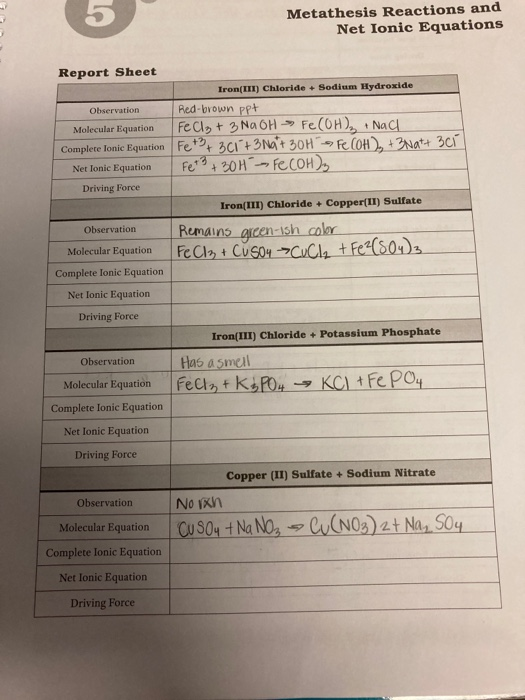 5
Metathesis Reactions and
Net Ionic Equations
Report Sheet
Iron(III) Chloride + Sodium Hydroxide
Observation Red-brown ppt
Molecular Equation FeCl3 + 3NaOH → Fe(OH)3 + NaCl
Complete Ionic Equation Fe+3 + 3Cl- + 3Na+ + 3OH- → Fe(OH)3 + 3Na+ + 3Cl-
Net Ionic Equation Fe+3 + 3OH- → Fe(OH)3
Driving Force
Iron(III) Chloride + Copper(II) Sulfate
Observation Remains green-ish color
Molecular Equation FeCl3 + CuSO4 → CuCl2 + Fe2(SO4)3
Complete Ionic Equation
Net Ionic Equation
Driving Force
Iron(III) Chloride + Potassium Phosphate
Observation Has a smell
Molecular Equation FeCl3 + K3PO4 → KCl + FePO4
Complete Ionic Equation
Net Ionic Equation
Driving Force
Copper (II) Sulfate + Sodium Nitrate
Observation No rxn
Molecular Equation CuSO4 + NaNO3 → Cu(NO3)2 + Na2SO4
Complete Ionic Equation
Net Ionic Equation
Driving Force